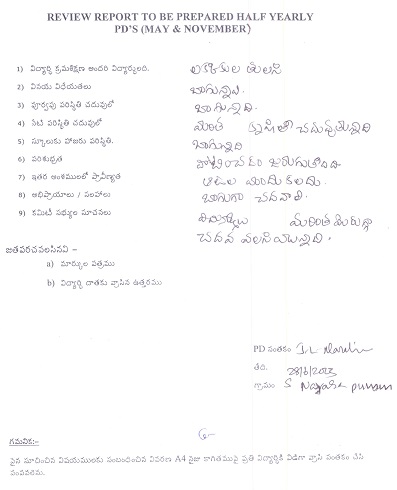 REVIEW REPORT TO BE PREPARED HALF YEARLY
PD'S (MAY & NOVEMBER)
1) విద్యార్థి క్రమశిక్షణ అందరి విద్యార్థులది.
2) వినయ విధేయతలు బాగున్నావి.
3) పూర్వపు పరిస్థితి చదువులో బాగున్నది.
4) నేటి పరిస్థితి చదువులో మరింత కృషితో చదువుతున్నది
5) స్కూలుకు హాజరు పరిస్థితి. బాగున్నది
6) పరిశుభ్రత పాటించడం జరుగుతోంది.
7) ఇతర అంశములలో ప్రావీణ్యత ఆటల యందు కలదు.
8) అభిప్రాయాలు / సలహాలు బాగుగా చదవాలి.
9) కమిటి సభ్యుల సూచనలు మరింత మెరుగ్గా
చదవ వలసియున్నది.
జతపరచవలసినవి -
a) మార్కుల పత్రము
b) విద్యార్థి దాతకు వ్రాసిన ఉత్తరము
PD సంతకం
తేది. 28/6/2023
గ్రామం S
గమనిక:-
పైన సూచించిన విషయములకు సంబంధించిన వివరణ A4 సైజు కాగితముపై ప్రతి విద్యార్థికి విడిగా వ్రాసి సంతకం చేసి
పంపవలెను.